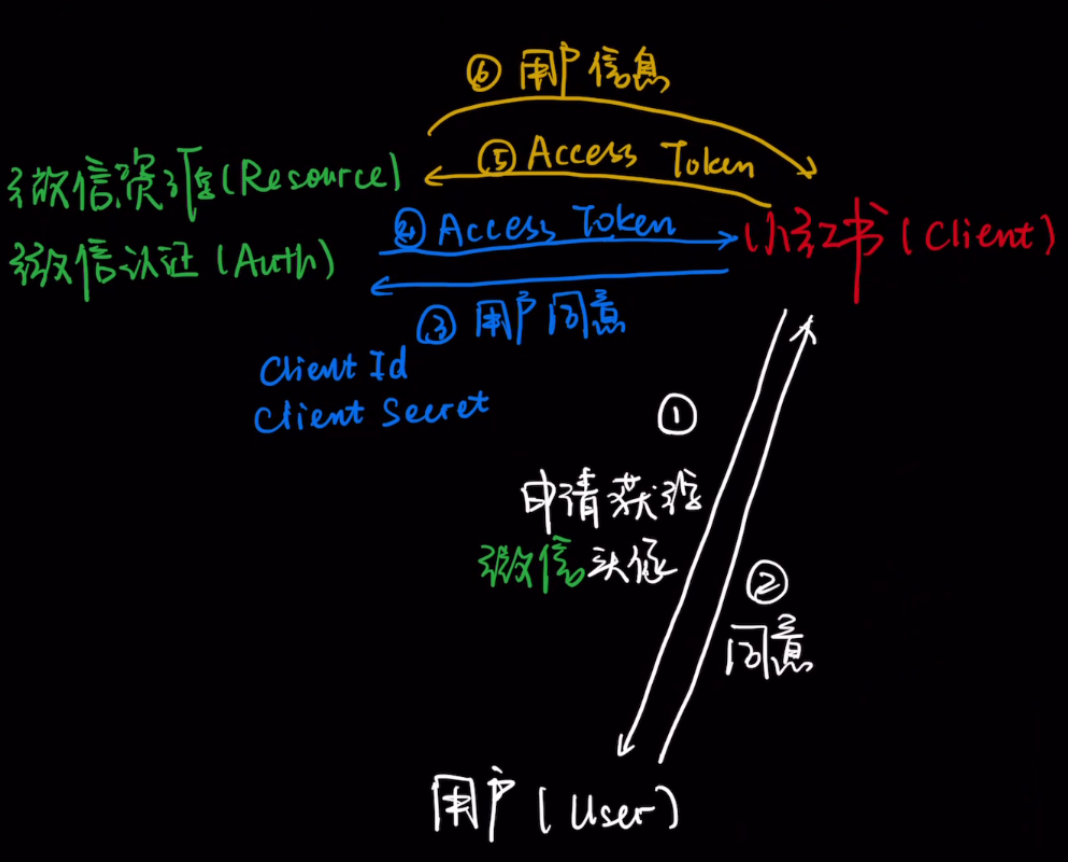 ⑥ 用户信息
⑤ Access Token
微信资源 (Resource)
④ Access Token
小红书 (Client)
微信认证 (Auth)
③ 用户同意
Client Id
Client Secret
①
申请获得
微信头像
②
同意
用户 (User)